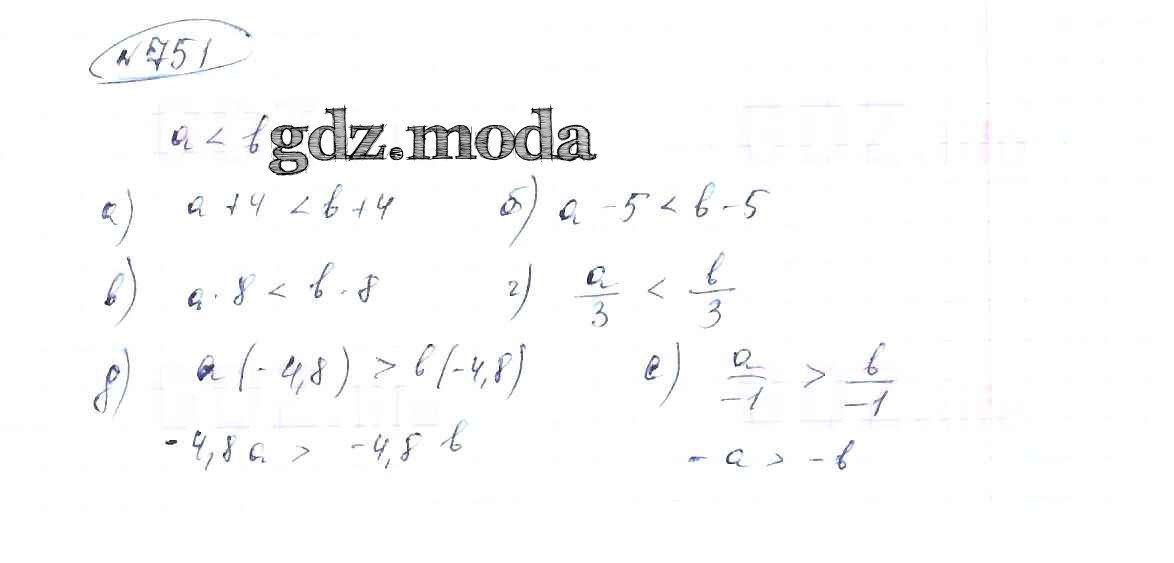 №751
a < b gdz.moda
а) a + 4 < b + 4 б) a - 5 < b - 5
в) a · 8 < b · 8 г) a/3 < b/3
д) a (- 4,8) > b (- 4,8) е) a/-1 > b/-1
- 4,8 a > - 4,8 b - a > - b